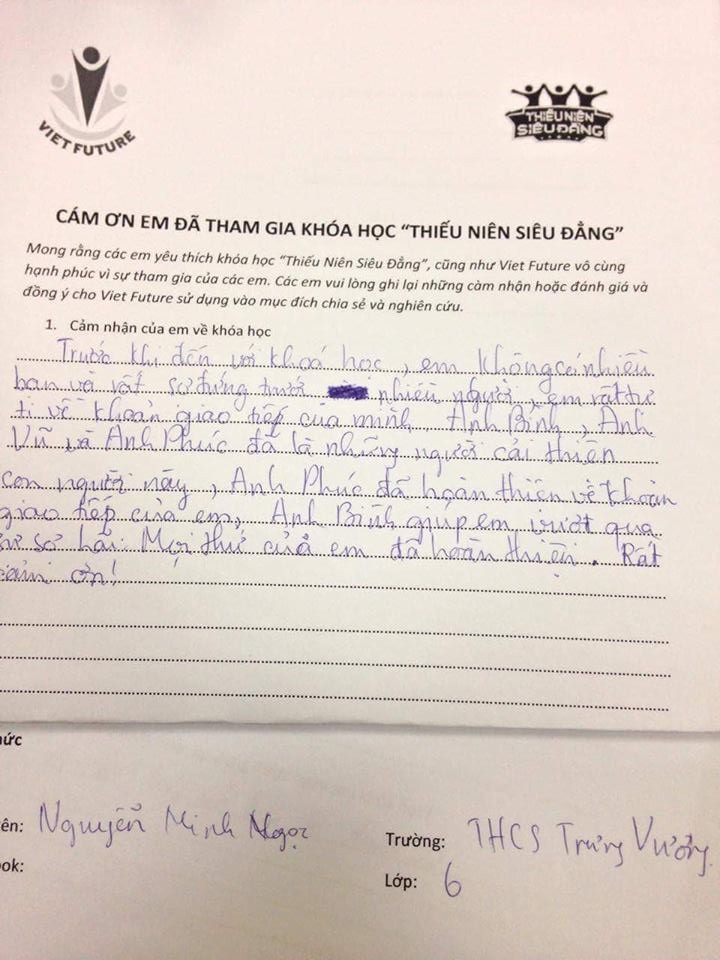 VIET FUTURE
THIẾU NIÊN
SIÊU ĐẲNG
CÁM ƠN EM ĐÃ THAM GIA KHÓA HỌC “THIẾU NIÊN SIÊU ĐẲNG”
Mong rằng các em yêu thích khóa học “Thiếu Niên Siêu Đẳng”, cũng như Viet Future vô cùng
hạnh phúc vì sự tham gia của các em. Các em vui lòng ghi lại những cảm nhận hoặc đánh giá và
đồng ý cho Viet Future sử dụng vào mục đích chia sẻ và nghiên cứu.
1. Cảm nhận của em về khóa học
Trước khi đến với khoá học, em không có nhiều
bạn và rất sợ đứng trước nhiều người, em rất tự
ti về khoản giao tiếp của mình. Anh Bình, Anh
Vũ và Anh Phúc đã là những người cải thiện
con người này, Anh Phúc đã hoàn thiện về khoản
giao tiếp của em, Anh Bình giúp em vượt qua
sự sợ hãi. Mọi thứ của em đã hoàn thiện. Rất
cảm ơn!
hức
ên: Nguyễn Minh Ngọc
Trường: THCS Trưng Vương
ook:
Lớp: 6